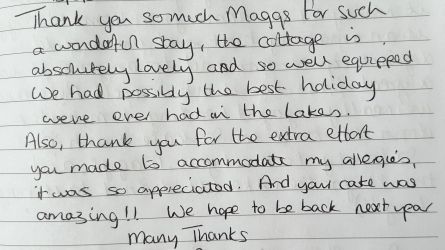 Thank you so much Maggs for such
a wonderful stay, the cottage is
absolutely lovely and so well equipped
We had possibly the best holiday
weve ever had in the Lakes.
Also, thank you for the extra effort
you made to accommodate my allergies,
it was so appreciated. And your cake was
amazing!! We hope to be back next year
Many Thanks